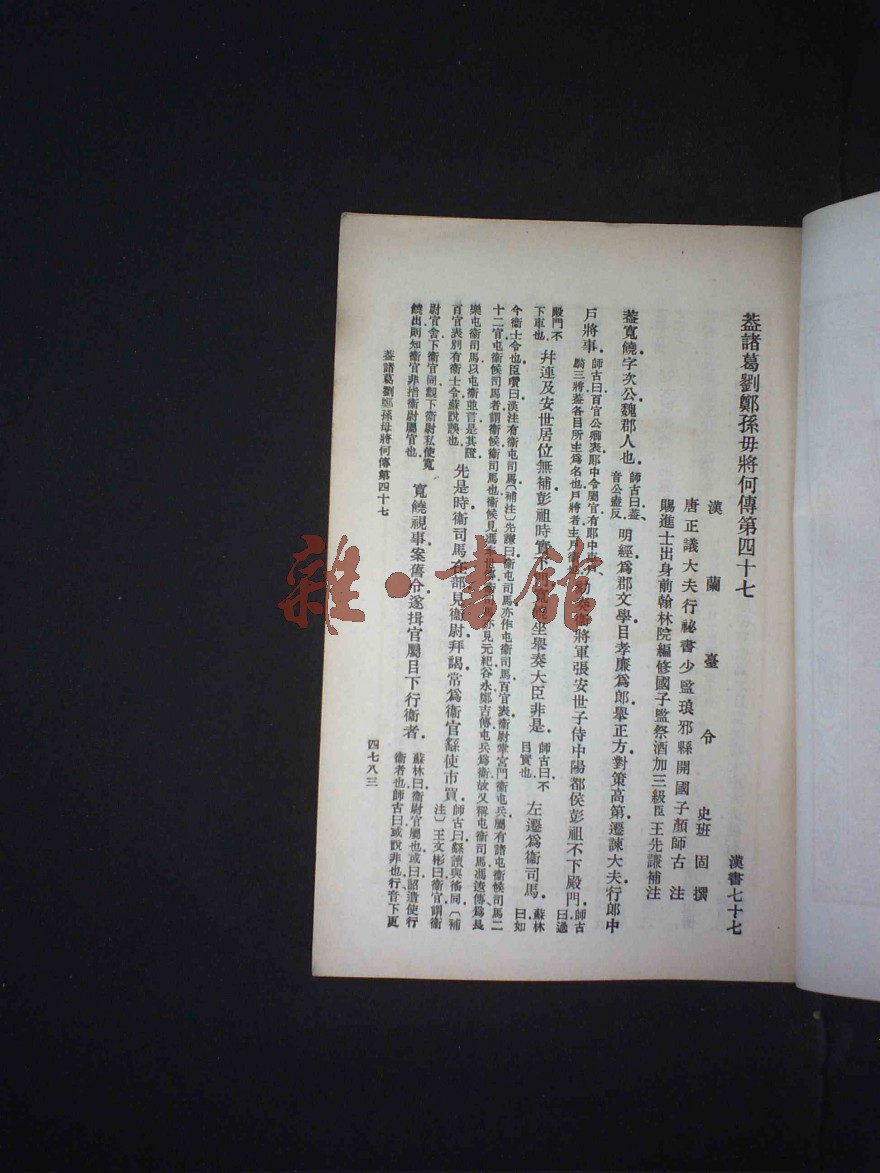 蓋諸葛劉鄭孫毋將何傳第四十七
漢書七十七
漢蘭臺令史班固撰
唐正議大夫行祕書少監琅邪縣開國子顏師古注
賜進士出身前翰林院編修國子監祭酒加三級臣王先謙補注
蓋寬饒字次公魏郡人也。師古曰蓋、音公盍反。明經爲郡文學目孝廉爲郎舉正方對策高第遷諫大夫行郎中
戶將事。師古曰百官公卿表郎中令屬官有郎中車騎三將蓋各目所主爲名也戶將者主戶衞將軍張安世子侍中陽都侯彭祖不下殿門。師古曰過
殿門不下車也。幷連及安世居位無補彭祖時實下門寬饒坐舉奏大臣非是。師古曰不目實也。左遷爲衞司馬。蘇林曰如
今衞士令也臣瓚曰漢注有衞屯司馬〔補注〕先謙曰衞屯司馬亦作屯衞司馬百官表衞尉掌宮門衞屯兵屬有諸屯衞候司馬二
十二官屯衞候司馬者謂衞候衞司馬也衞候見馮奉世傳亦見元紀谷永鄭吉傳屯兵爲衞故又稱屯衞司馬馮逡傳爲長
樂屯衞司馬以屯衞並言是其證
百官表別有衞士令蘇說誤也。先是時衞司馬在部見衞尉拜謁常爲衞官繇使市買。師古曰繇讀與徭同〔補注〕王文彬曰衞官謂衞
尉官舍下衞官同觀下衞尉私使寬
饒出則知衞官非指衞尉屬官也。寬饒視事案舊令遂揖官屬目下行衞者。蘇林曰衞尉官屬也或曰詔遣使行衞者也師古曰或說非也行音下更
蓋諸葛劉鄭孫毋將何傳第四十七
四七八三
雜·書館